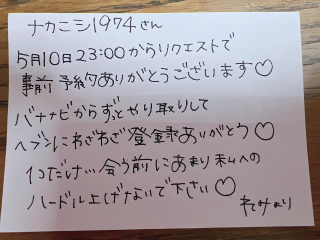 ナカニシ1974さん
5月10日23:00からリクエストで
事前予約ありがとうございます♡
バナナビからずっとやり取りして
ヘブンにわざわざ登録ありがとう♡
1コだけ…会う前にあまり私への
ハードル上げないで下さい♡